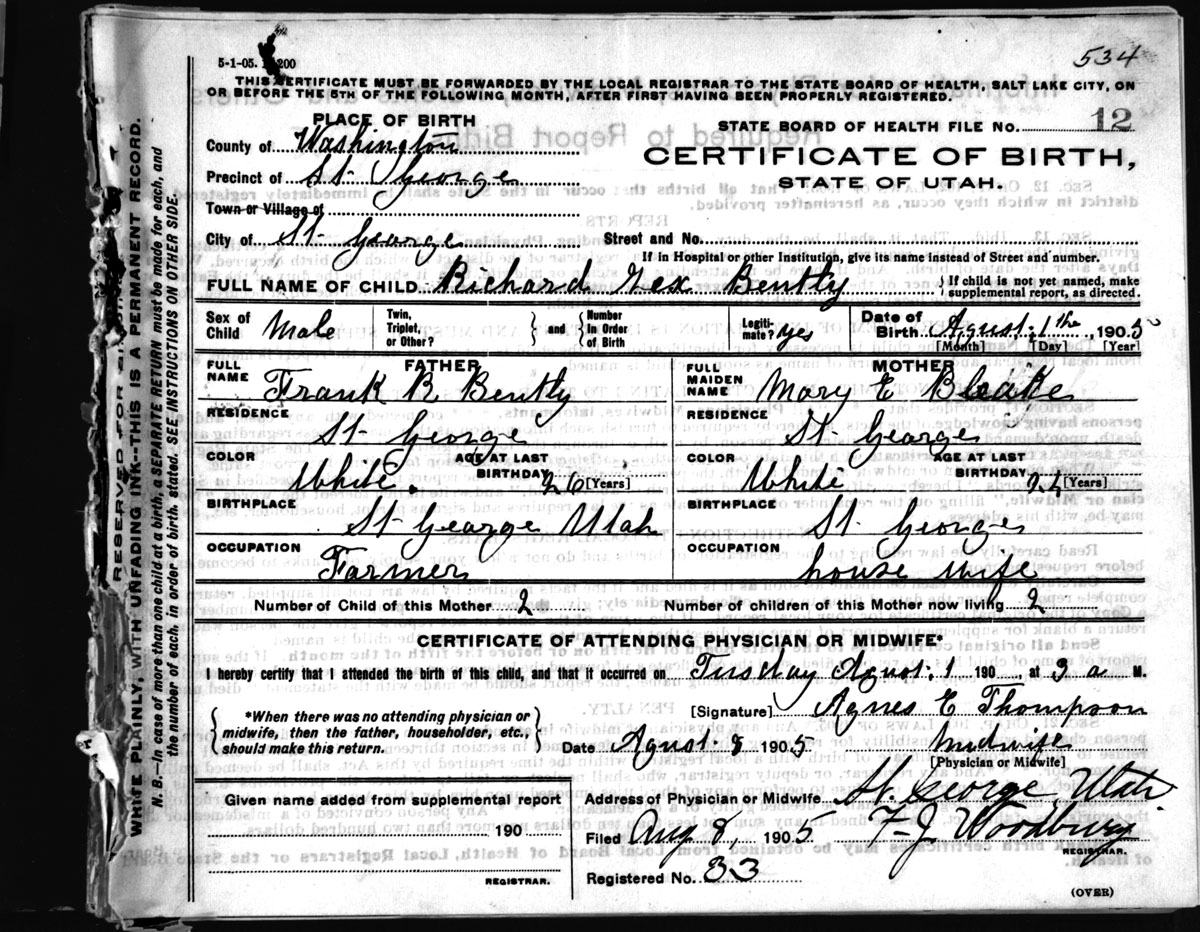 534
5-1-05. 200
THIS CERTIFICATE MUST BE FORWARDED BY THE LOCAL REGISTRAR TO THE STATE BOARD OF HEALTH, SALT LAKE CITY, ON
OR BEFORE THE 5TH OF THE FOLLOWING MONTH, AFTER FIRST HAVING BEEN PROPERLY REGISTERED.
PLACE OF BIRTH
County of Washington
Precinct of St George
Town or Village of
City of St George
STATE BOARD OF HEALTH FILE NO. 12
CERTIFICATE OF BIRTH,
STATE OF UTAH.
Street and No.
If in Hospital or other Institution, give its name instead of Street and number.
FULL NAME OF CHILD Richard Bently } If child is not yet named, make supplemental report, as directed.
Sex of Child Male Twin, Triplet, or Other? } and { Number In Order of Birth Legiti-mate? yes Date of Birth Agust 1the 1905
[Month] [Day] [Year]
FATHER
FULL NAME Frank R Bently
RESIDENCE St George
COLOR White. AGE AT LAST BIRTHDAY 26 [Years]
BIRTHPLACE St George Utah
OCCUPATION Farmer
MOTHER
FULL MAIDEN NAME Mary E Bleake
RESIDENCE St George
COLOR White AGE AT LAST BIRTHDAY 24 [Years]
BIRTHPLACE St George
OCCUPATION house wife
Number of Child of this Mother 2 Number of children of this Mother now living 2
CERTIFICATE OF ATTENDING PHYSICIAN OR MIDWIFE*
I hereby certify that I attended the birth of this child, and that it occurred on Tusday Agust. 1 190 , at 3 a M.
{ *When there was no attending physician or
midwife, then the father, householder, etc.,
should make this return. }
[Signature] Agnes E Thompson
Date Agust. 8 1905. Midwife
[Physician or Midwife]
Given name added from supplemental report
190
REGISTRAR.
Address of Physician or Midwife St. George Utah.
Filed Aug 8, 1905 F J Woodbury
REGISTRAR.
Registered No. 33
(OVER)
RESERVED FOR BINDING
WRITE PLAINLY, WITH UNFADING INK--THIS IS A PERMANENT RECORD.
N. B.—In case of more than one child at a birth, a SEPARATE RETURN must be made for each, and
the number of each, in order of birth, stated. SEE INSTRUCTIONS ON OTHER SIDE.